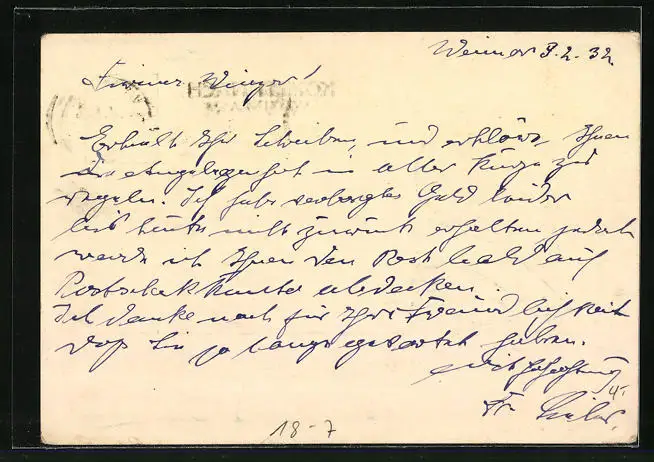 Weimar 3.2.32
Firma Winger!
Erhielt Ihr Schreiben, und erkläre Ihnen
die Angelegenheit in aller Kürze zu
regeln. Ich habe verborgtes Geld leider
bis heute nicht zurück erhalten jedoch
werde ich Ihnen den Rest bald auf
Postscheckkonto
Ich danke noch für Ihre Freundlichkeit
daß Sie so lange gewartet haben.
Mit Hochachtung
Fr.
18-7